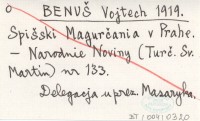 BENUŠ Vojtech 1919.
Spišski Magurčania v Prahe.
— Narodnie Noviny (Turč. Sv.
Martin) nr 133.
Delegacja u prez. Masaryka.